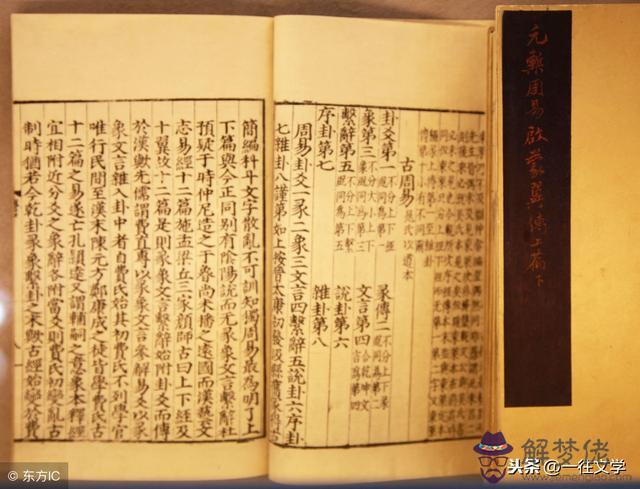 元槧周易啟蒙翼傳上篇下
古周易 晁氏以道本
卦爻第一 不分上下經 彖傳二 不分上下彖
象第三 不分大小上下 文言第四
繫辭第五 不分上下繫 說卦第六
序卦第七 雜卦第八
周易卦爻一彖二象三文言四繫辭五說卦六序卦
七雜卦八謹第如上按晉太康初發汲縣舊冢得古
簡編科斗文字散亂不可訓知獨周易最為明了上
下篇與今正同別有陰陽說而无彖象文言繫辭杜
預疑于時仲尼造之于魯尚未播之遠國而漢藝文
志易經十二篇施孟梁丘三家顏師古曰上下經及
十翼故十二篇是則彖象文言繫辭始附卦爻而傳
於漢歟先儒謂費直專以彖象文言參解易爻以彖
象文言雜入卦中者自費氏始其初費氏不列學官
唯行民間至漢末陳元方鄭康成之徒皆學費氏古
十二篇之易遂亡孔穎達又謂輔嗣之意象本釋經
宜相附近分爻之象辭各附當爻則費氏初變亂古
制時猶若今乾卦彖象繫卦之末歟古經始變於費
© 东方IC
解梦佬
头条@一往文学